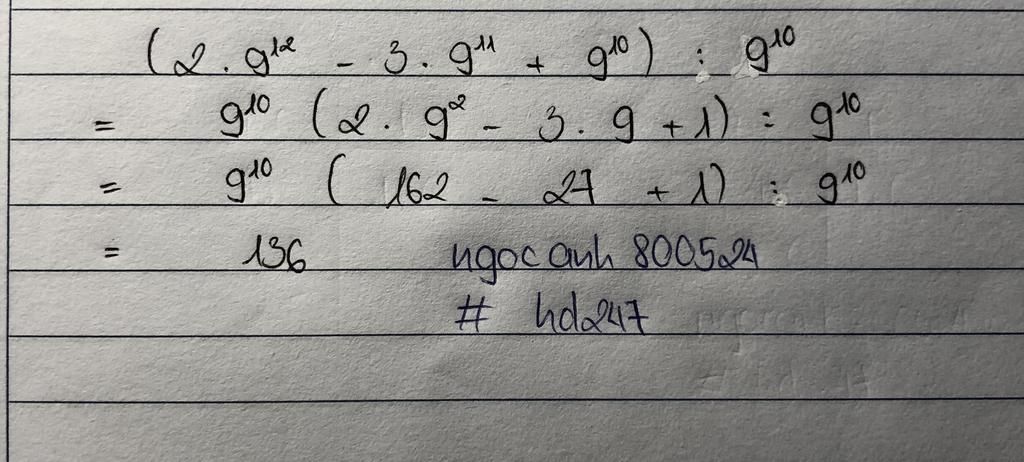 (2 . 9¹² - 3 . 9¹¹ + 9¹⁰) : 9¹⁰
= 9¹⁰ (2 . 9² - 3 . 9 + 1) : 9¹⁰
= 9¹⁰ ( 162 - 27 + 1) : 9¹⁰
= 136 ngocanh 800524
# hd247